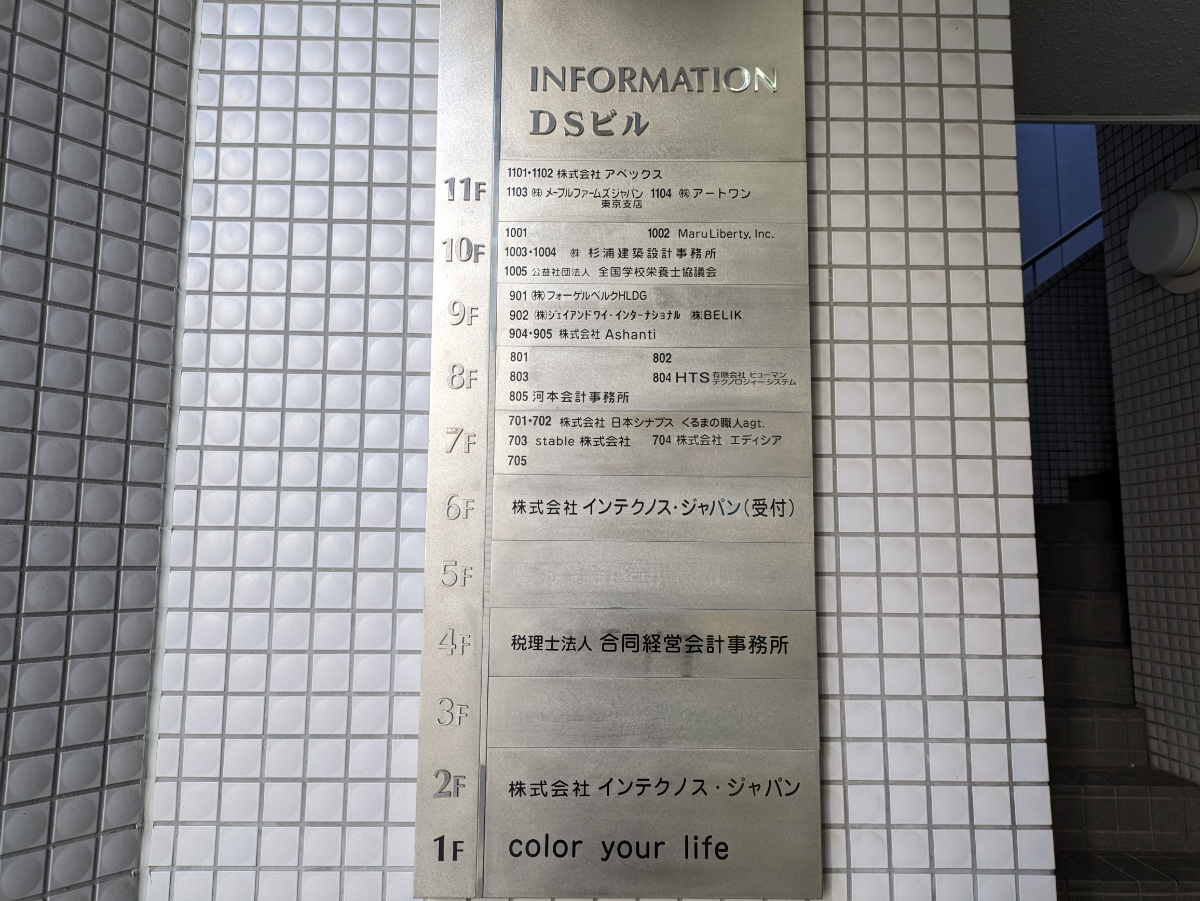 INFORMATION
DSビル
11F
1101・1102 株式会社 アベックス
1103 ㈱ メープルファームズジャパン 東京支店 1104 ㈱ アートワン
10F
1001 1002 MaruLiberty, Inc.
1003・1004 ㈱ 杉浦建築設計事務所
1005 公益社団法人 全国学校栄養士協議会
9F
901 ㈱フォーゲルベルクHLDG
902 ㈱ジェイアンドワイ・インターナショナル ㈱BELIK
904・905 株式会社 Ashanti
8F
801 802
803 804 HTS 有限会社 ヒューマン テクノロジィーシステム
805 河本会計事務所
7F
701・702 株式会社 日本シナプス くるまの職人agt.
703 stable 株式会社 704 株式会社 エディシア
705
6F 株式会社 インテクノス・ジャパン(受付)
5F
4F 税理士法人 合同経営会計事務所
3F
2F 株式会社 インテクノス・ジャパン
1F color your life